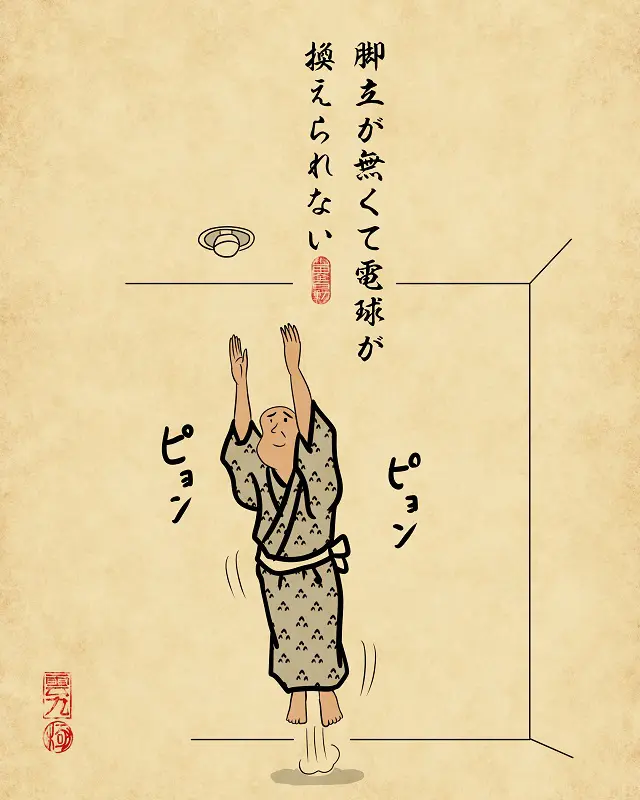 脚立が無くて電球が
換えられない
ピョン
ピョン